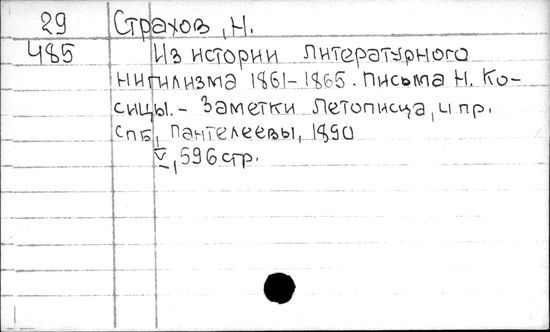 29 Страхов, Н.
485 Из истории литературного
нигилизма 1861-1865. Письма Н. Ко-
сицы. - Заметки Летописца, и пр.
СПБ, Пантелеевы, 1890
V, 596 стр.